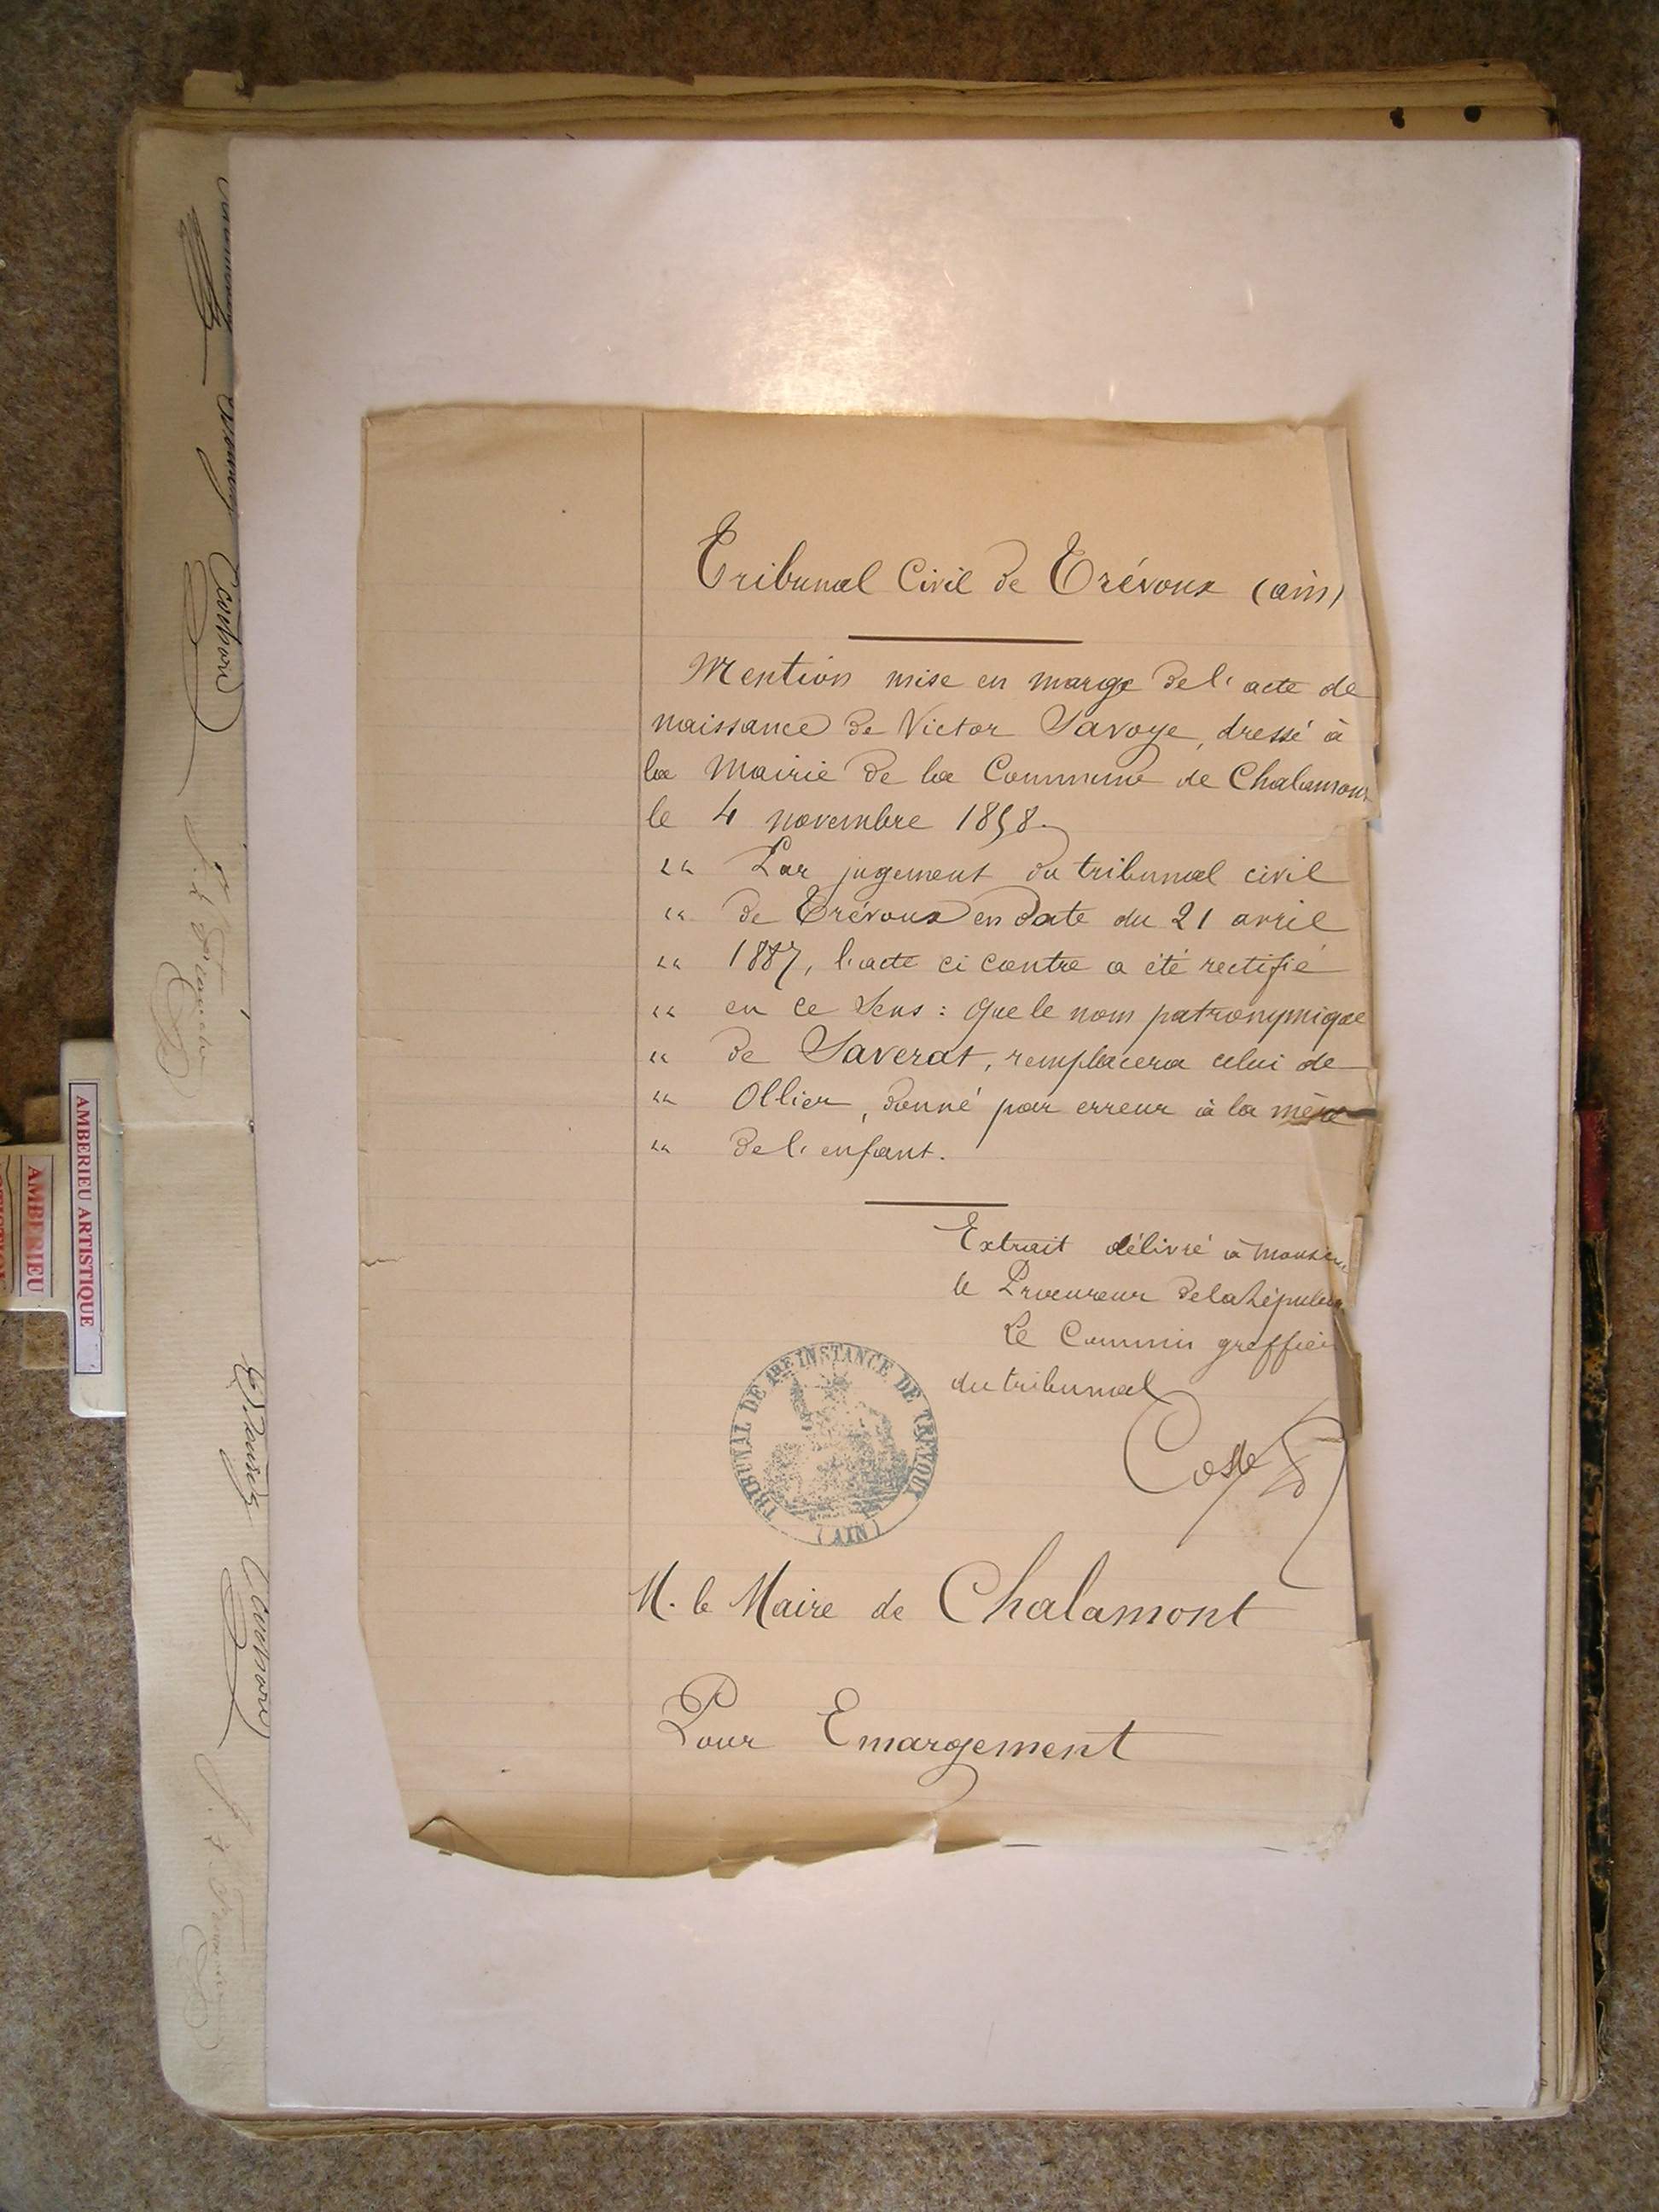 Tribunal Civil de Trévoux (ain)
Mention mise en marge de l'acte de
naissance de Victor Savoye, dressé à
la Mairie de la Commune de Chalamont
le 4 novembre 1858.
"" Par jugement du tribunal civil
"" de Trévoux en date du 21 avril
"" 1887, l'acte ci contre a été rectifié
"" en ce sens : que le nom patronymique
"" de Saverat, remplacera celui de
"" Ollier, donné par erreur à la mère
"" de l'enfant.
Extrait délivré à Monsieur
le Procureur de la Républiq
Le Commis greffier
du tribunal
Coste
TRIBUNAL DE 1RE INSTANCE DE TREVOUX
(AIN)
M. le Maire de Chalamont
Pour Emargement
AMBERIEU ARTISTIQUE
AMBERIEU